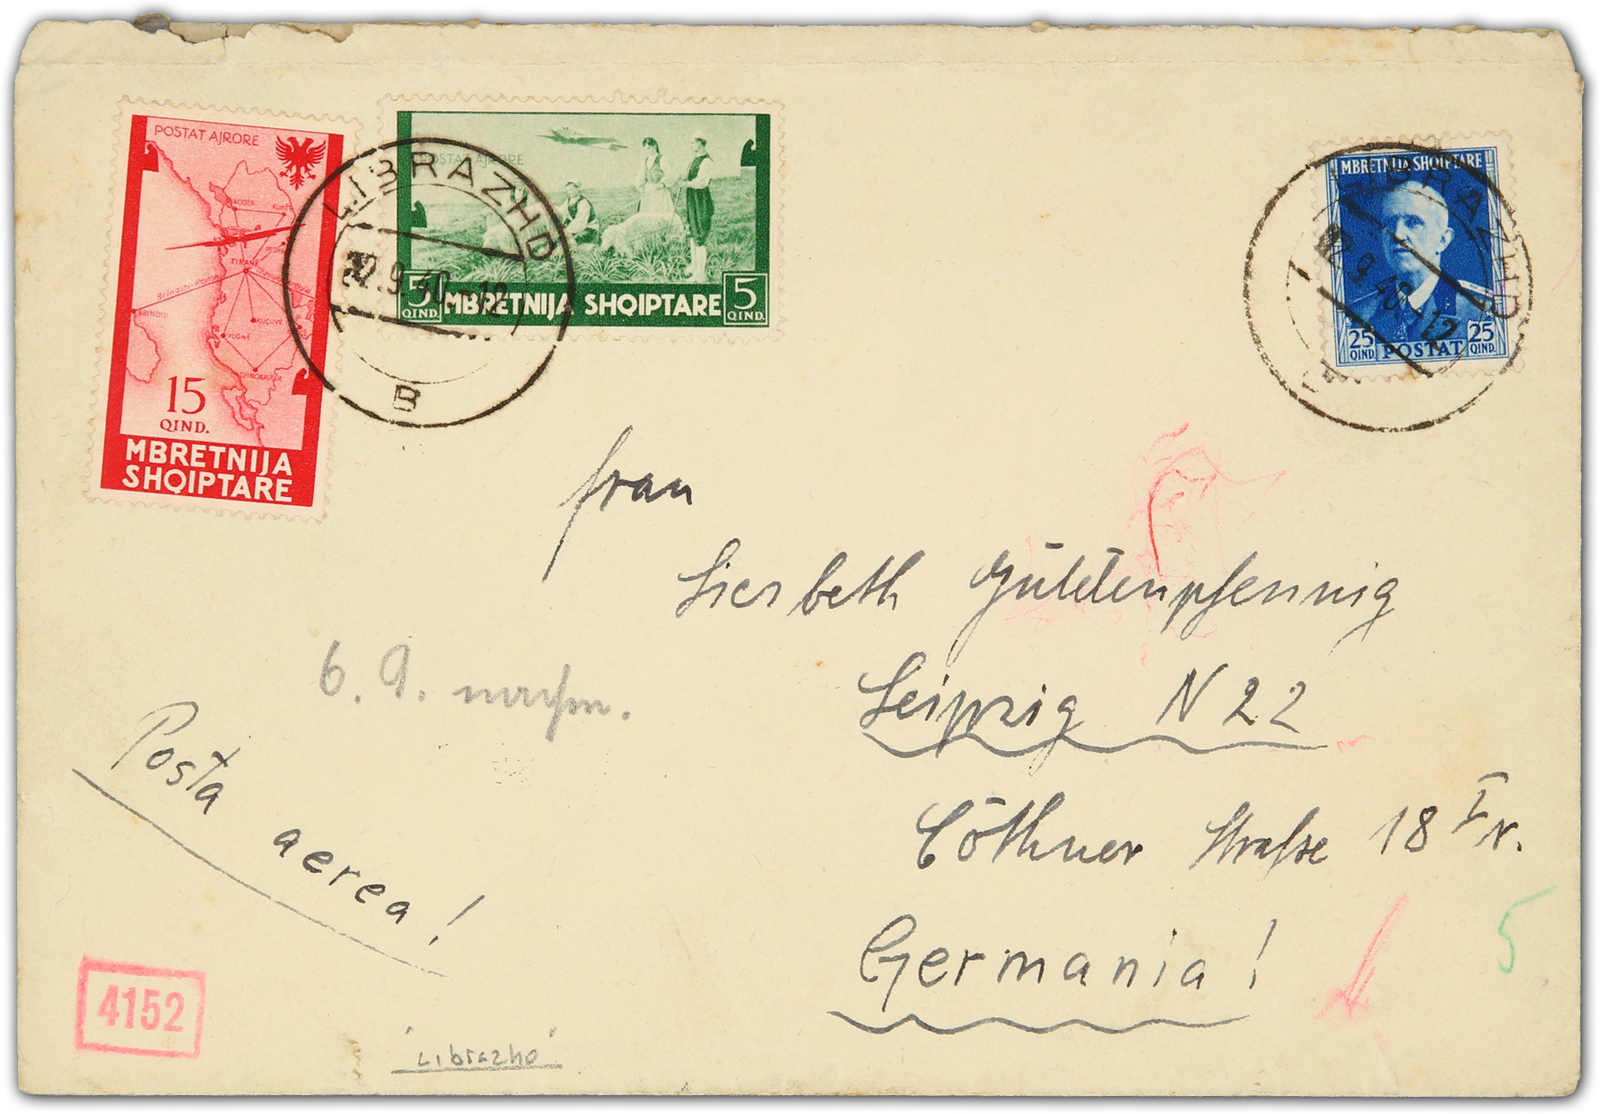 POSTAT AJRORE
15
QIND.
MBRETNIJA
SHQIPTARE
POSTAT AJRORE
5 QIND. MBRETNIJA SHQIPTARE 5 QIND.
LIBRAZHD
2.9.40.-12
B
MBRETNIJA SHQIPTARE
25 QIND POSTAT 25 QIND.
2.9.40-12
Frau
Liesbeth Güldenpfennig
Leipzig N 22
Cöthner Straße 18 I r.
Germania!
6. 9. nachm.
Posta aerea!
4152
Librazhd
5